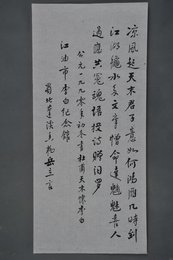 凉风起天末君子意如何鸿雁几时到
江湖秋水多文章憎命达魑魅喜人
过应共冤魂语投诗赠汨罗
公元一九九零年初冬书杜甫天末怀李白
江油市李白纪念馆